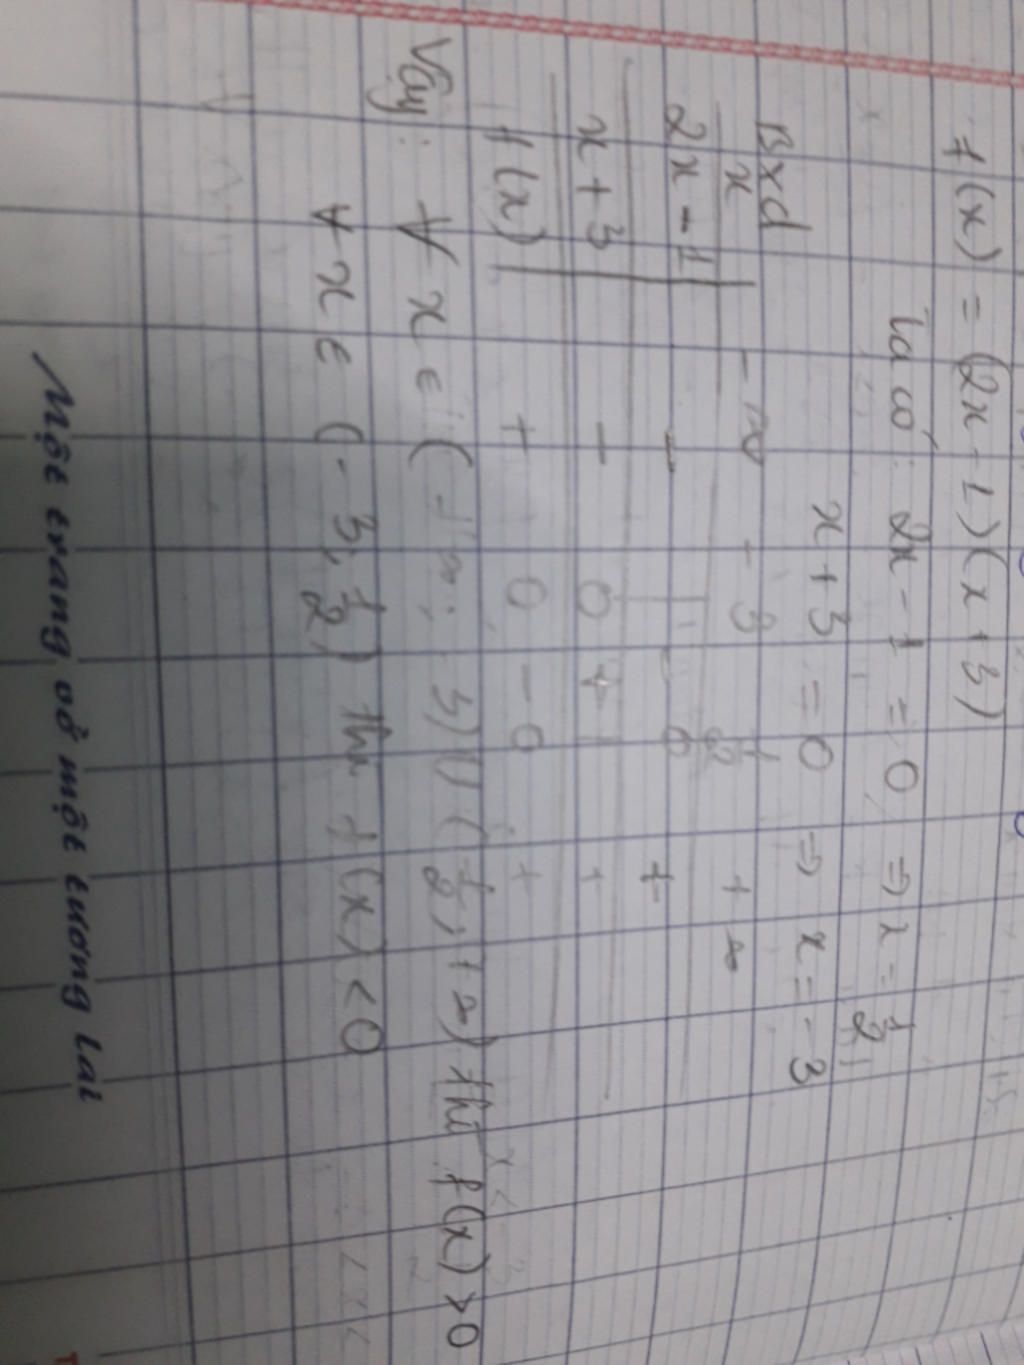 f(x) = (2x - 1)(x + 3)
Ta có: 2x - 1 = 0 => x = 1/2
x + 3 = 0 => x = -3
Bxd
x -∞ -3 1/2 +∞
2x - 1 - | - 0 +
x + 3 - 0 + | +
f(x) + 0 - 0 +
Vậy: ∀ x ∈ (-∞; -3) ∪ (1/2; +∞) thì f(x) > 0
∀ x ∈ (-3; 1/2) thì f(x) < 0
Một trang vở một tương lai